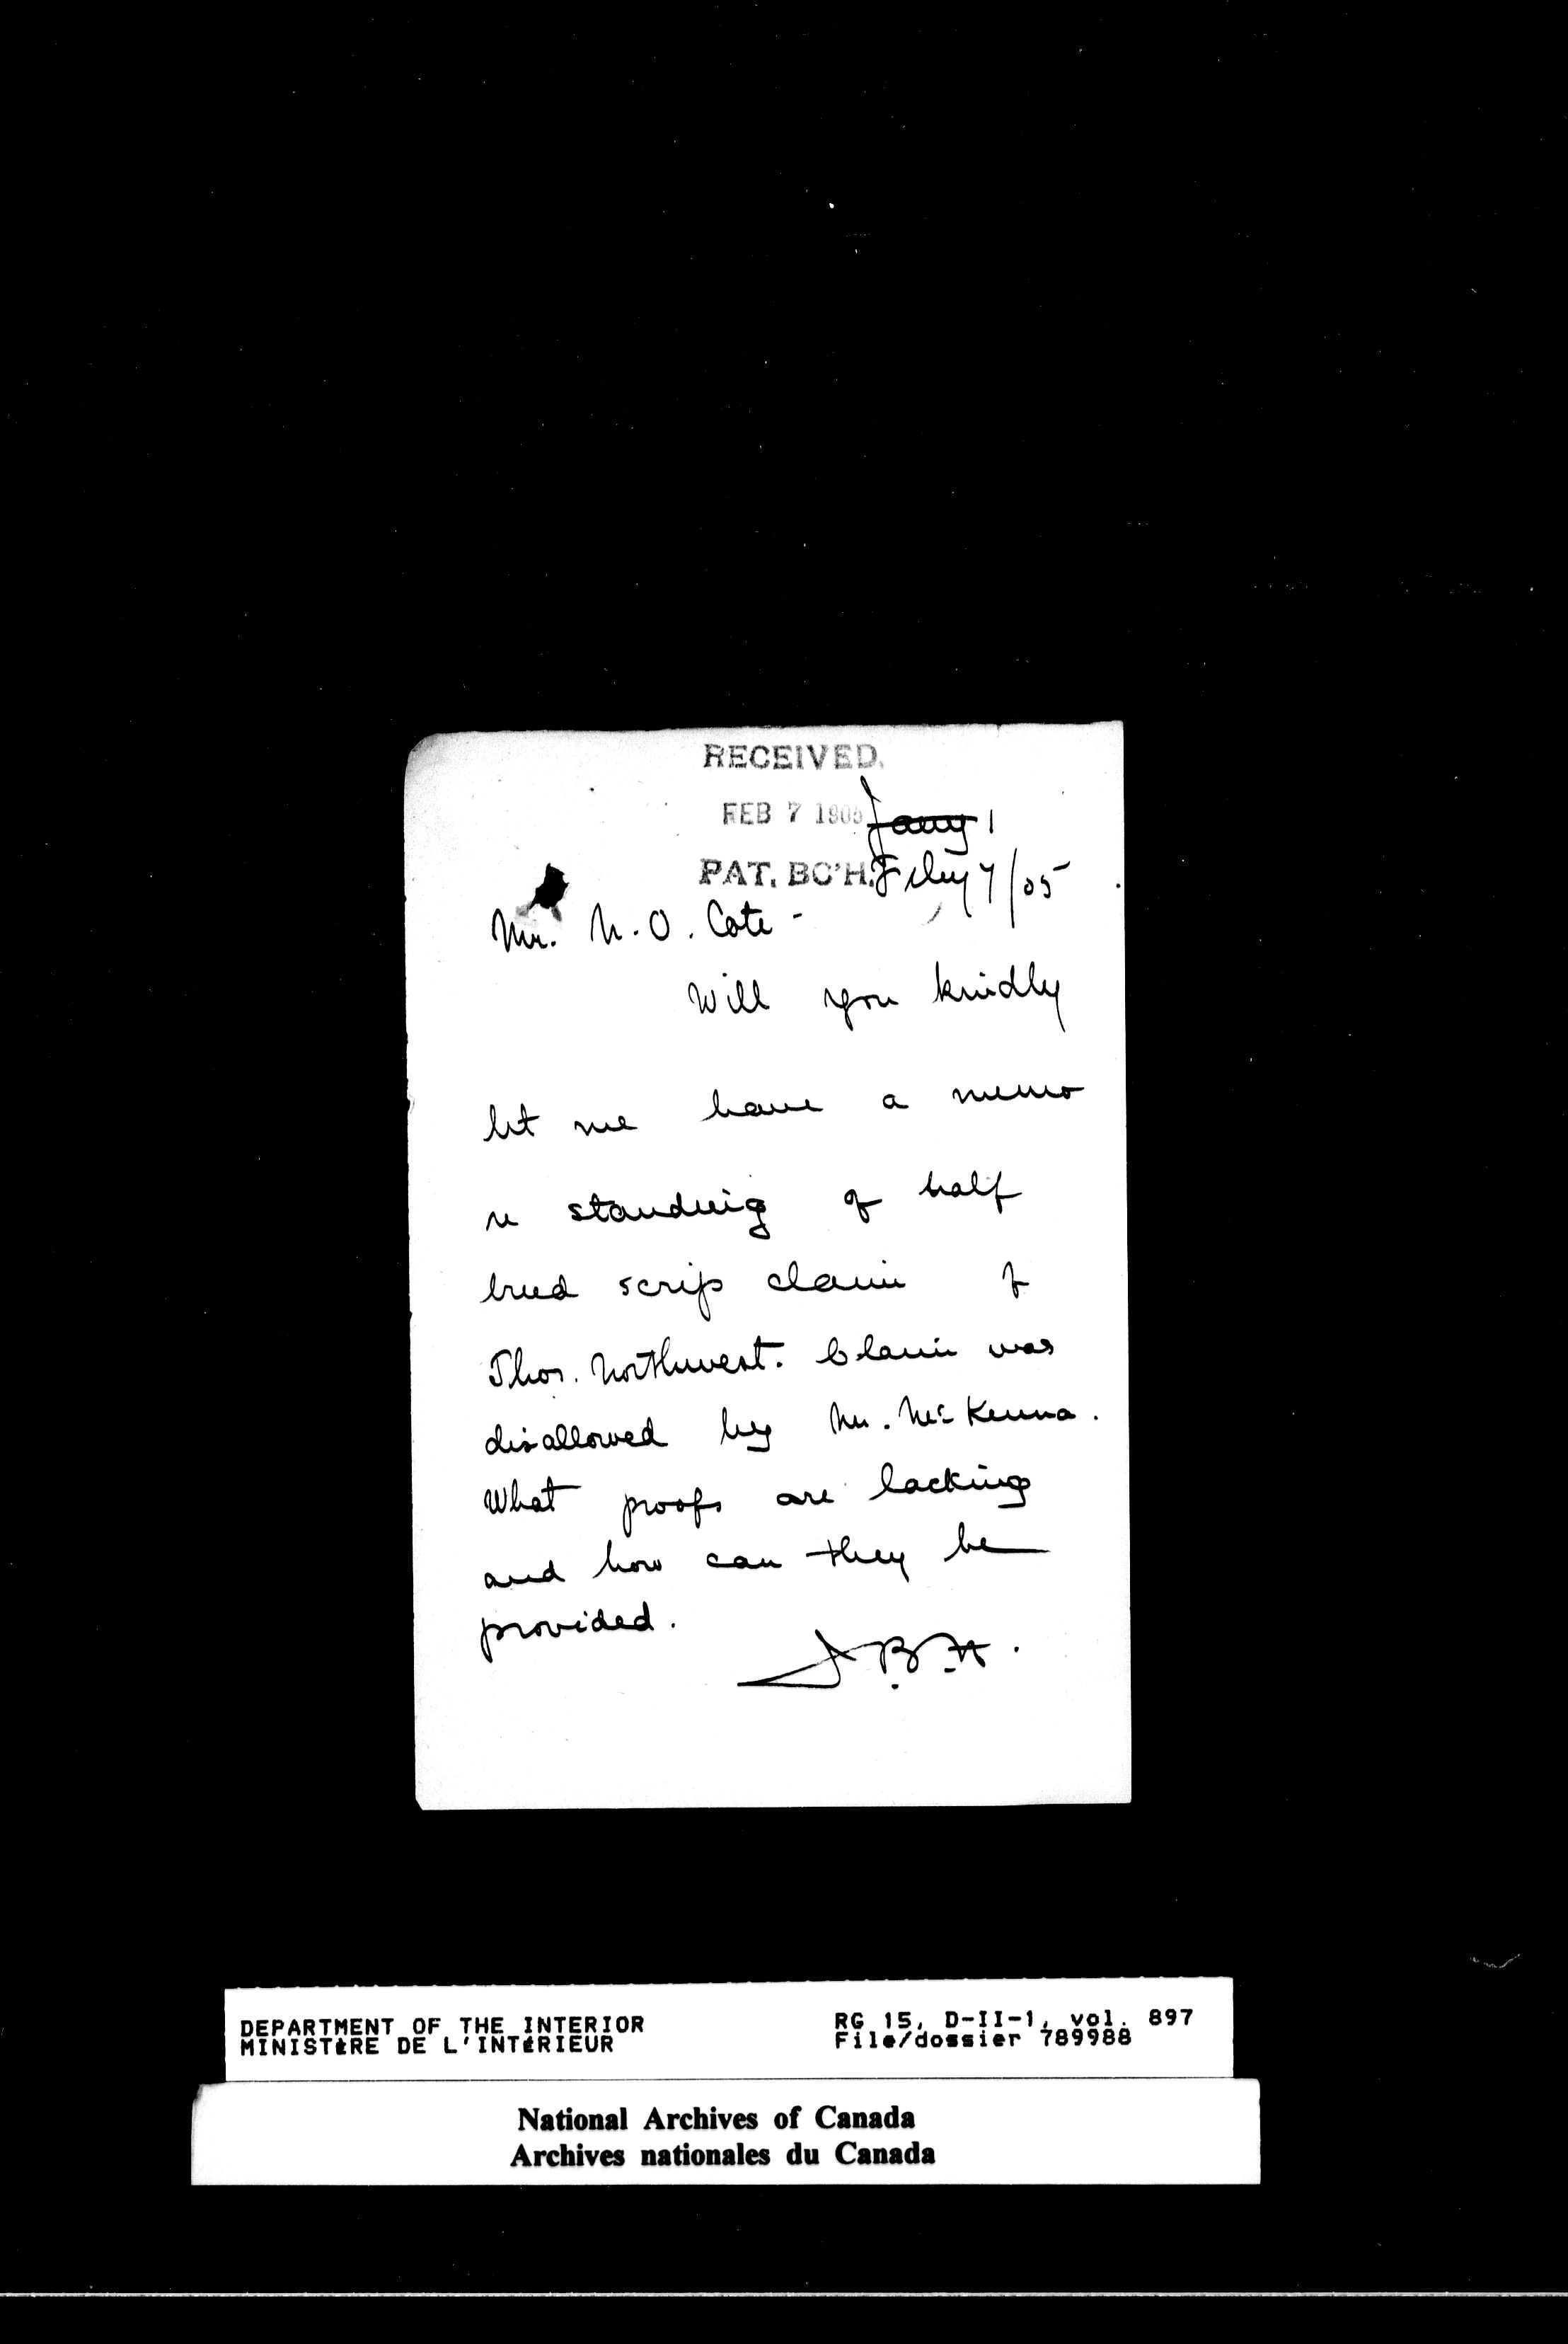 RECEIVED.
FEB 7 1905
Jany 1
PAT. BC'H.
Feby 7/05
Mr. N. O. Cote -
Will you kindly
let me have a memo
re standing of half
breed scrip claim of
Thos. Northwest. Claim was
disallowed by Mr. McKenna.
What proofs are lacking
and how can they be
provided.
DEPARTMENT OF THE INTERIOR
MINISTÈRE DE L'INTÉRIEUR
RG 15, D-II-1, vol. 897
File/dossier 789988
National Archives of Canada
Archives nationales du Canada